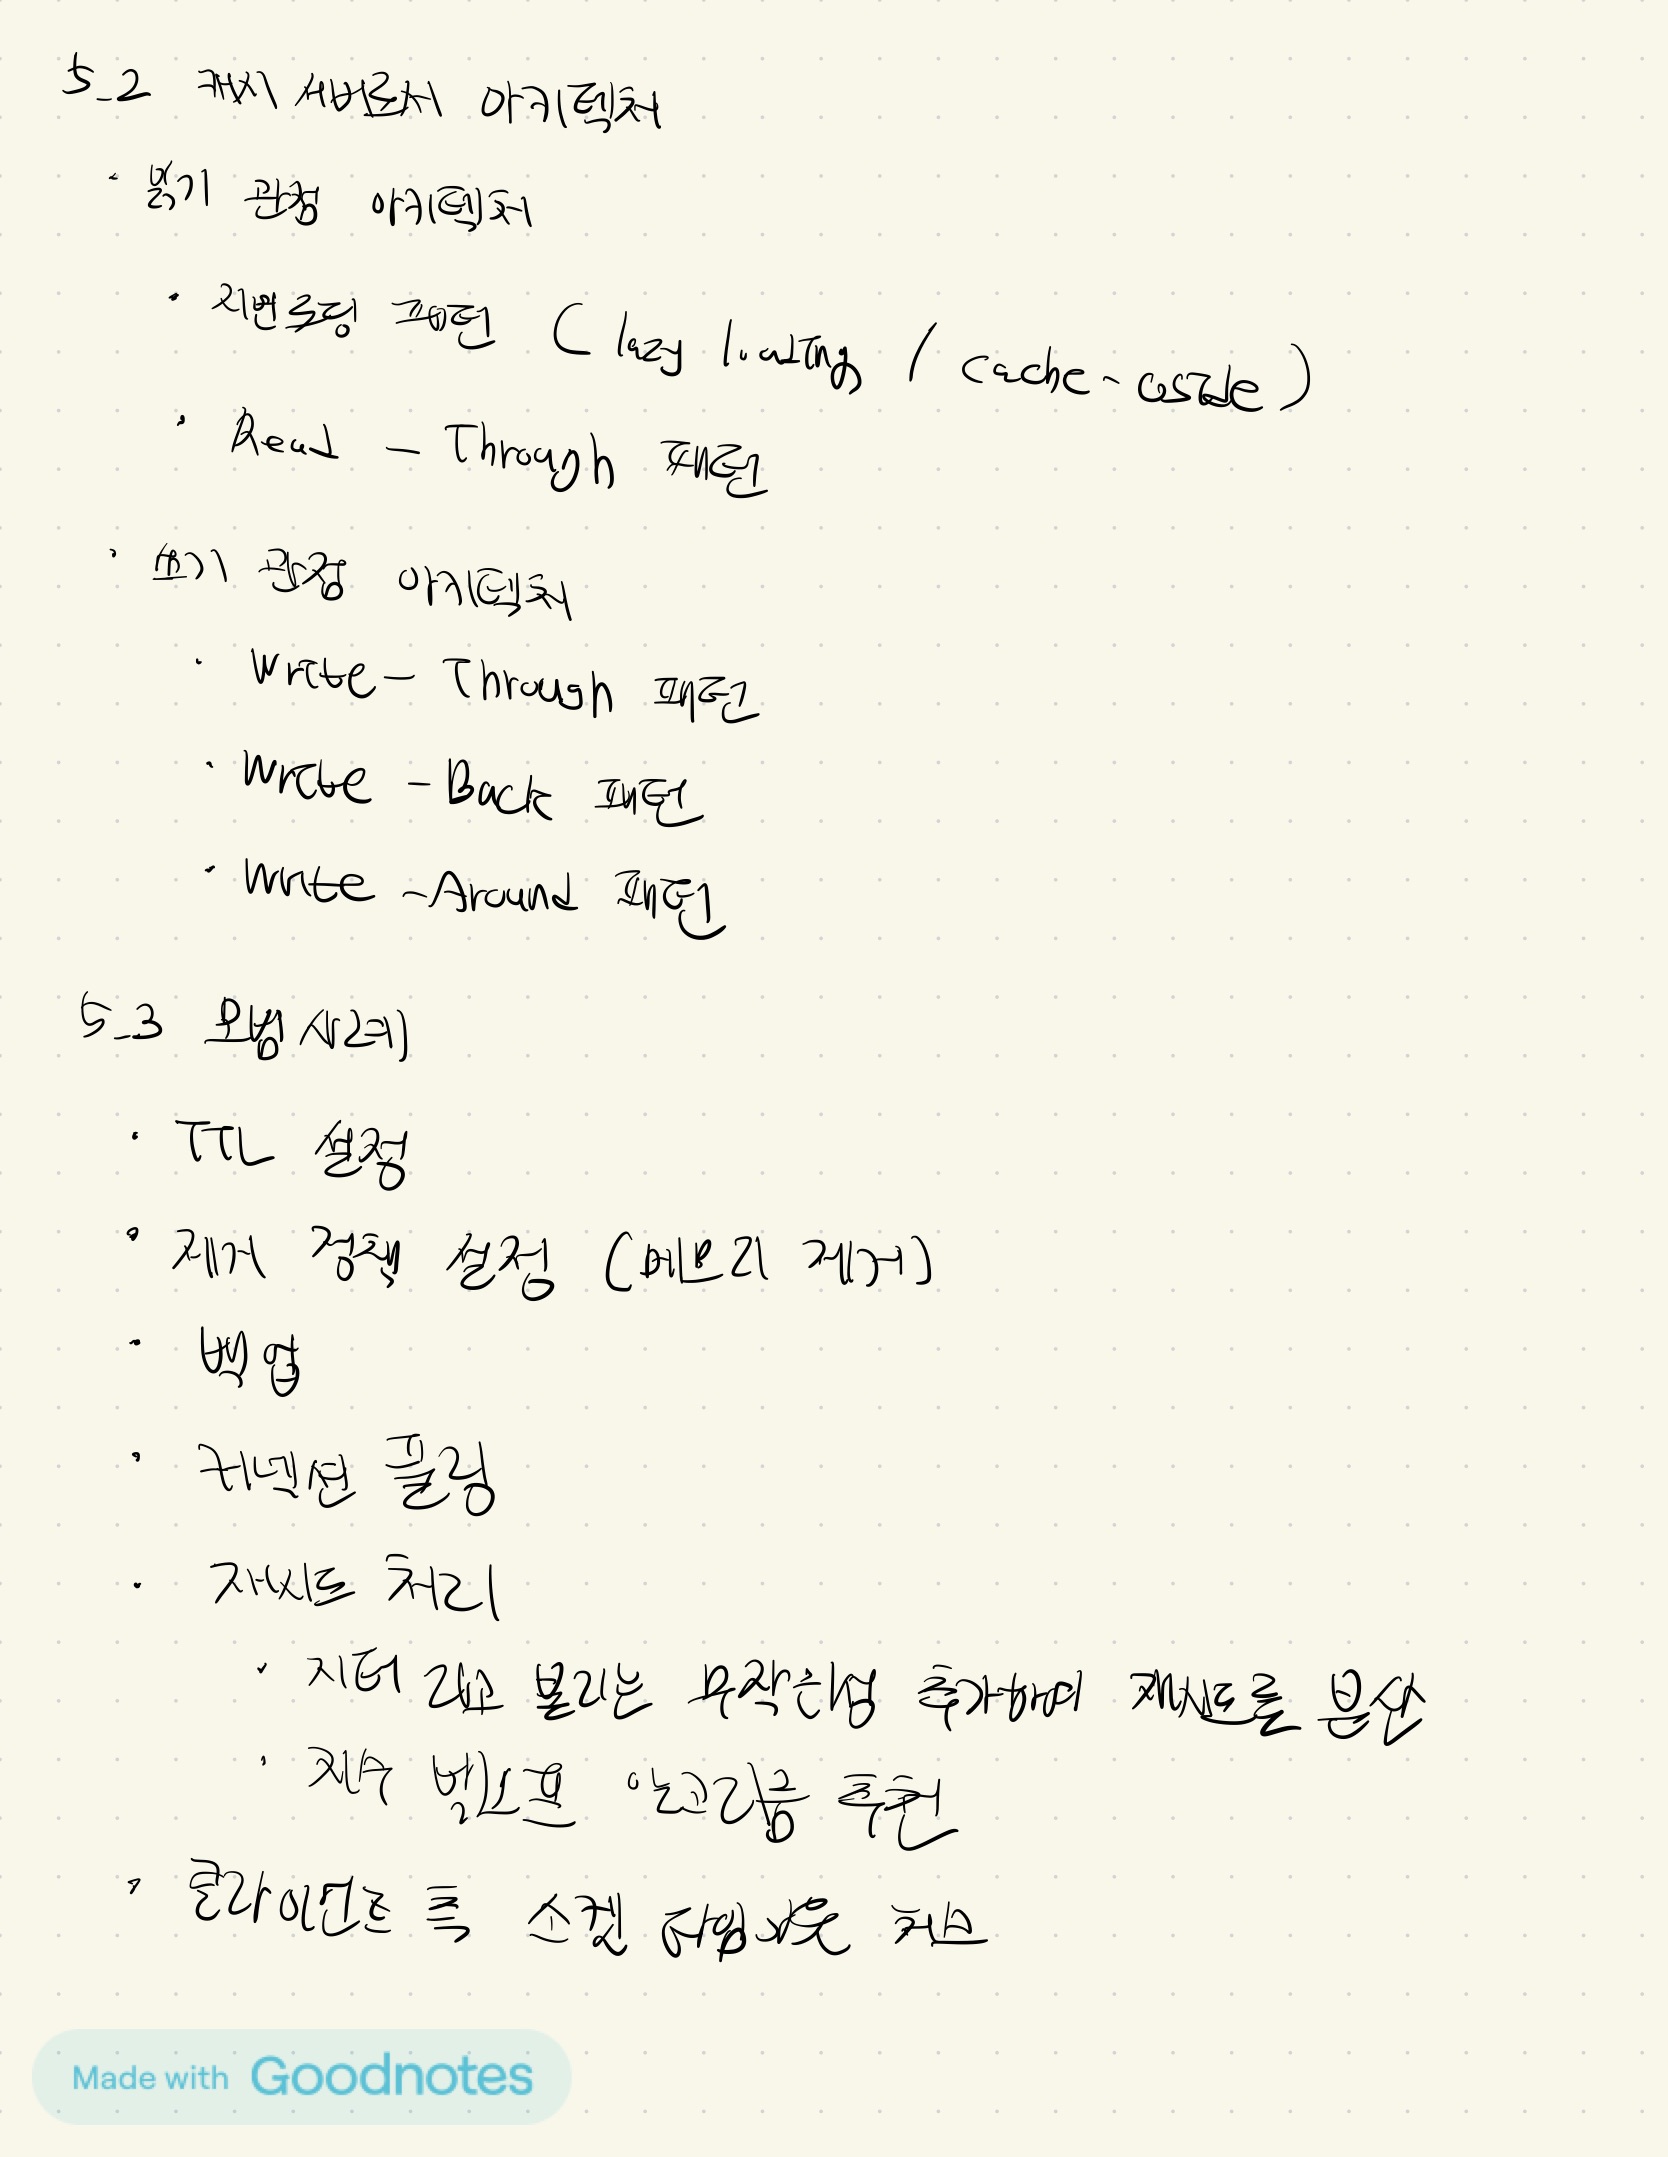 5_2 캐시 서버로서 아키텍처
· 읽기 관점 아키텍처
· 지연로딩 패턴 (lazy loading / cache-aside)
· Read - Through 패턴
· 쓰기 관점 아키텍처
· Write - Through 패턴
· Write - Back 패턴
· Write - Around 패턴
5_3 모범 사례
· TTL 설정
· 제거 정책 설정 (메모리 제거)
· 백업
· 커넥션 풀링
· 재시도 처리
· 지터 라고 불리는 무작위성 추가하여 재시도를 분산
· 지수 백오프 알고리즘 추천
· 클라이언트 측 소켓 타임아웃 체크
Made with Goodnotes